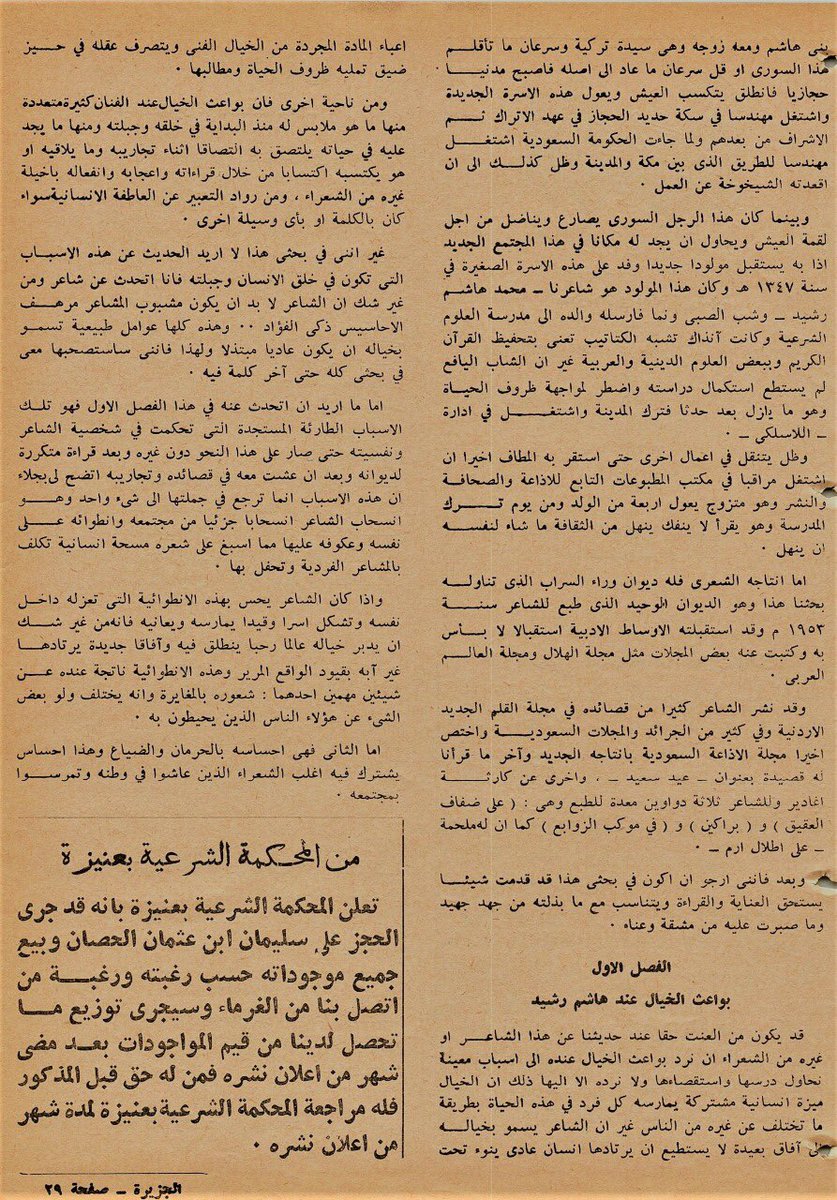 بنى هاشم ومعه زوجه وهى سيدة تركية وسرعان ما تأقلم
هذا السورى او قل سرعان ما عاد الى اصله فاصبح مدنيا
حجازيا فانطلق يتكسب العيش ويعول هذه الاسرة الجديدة
واشتغل مهندسا فى سكة حديد الحجاز في عهد الاتراك ثم
الاشراف من بعدهم ولما جاءت الحكومة السعودية اشتغل
مهندسا للطريق الذى بين مكة والمدينة وظل كذلك الى ان
اقعدته الشيخوخة عن العمل ٠
وبينما كان هذا الرجل السورى يصارع ويناضل من اجل
لقمة العيش ويحاول ان يجد له مكانا في هذا المجتمع الجديد
اذا به يستقبل مولودا جديدا وفد على هذه الاسرة الصغيرة في
سنة ١٣٤٧ هـ وكان هذا المولود هو شاعرنا ـ محمد هاشم
رشيد ـ وشب الصبى ونما فارسله والده الى مدرسة العلوم
الشرعية وكانت آنذاك تشبه الكتاتيب تعنى بتحفيظ القرآن
الكريم وببعض العلوم الدينية والعربية غير ان الشاب اليافع
لم يستطع استكمال دراسته واضطر لمواجهة ظروف الحياة
وهو ما يازل بعد حدثا فترك المدينة واشتغل في ادارة
ـ اللاسلكى ـ ٠
وظل يتنقل في اعمال اخرى حتى استقر به المطاف اخيرا ان
اشتغل مراقبا في مكتب المطبوعات التابع للاذاعة والصحافة
والنشر وهو متزوج يعول اربعة من الولد ومن يوم ترك
المدرسة وهو يقرأ لا ينفك ينهل من الثقافة ما شاء لنفسه
ان ينهل ٠
اما انتاجه الشعرى فله ديوان وراء السراب الذى تناوله
بحثنا هذا وهو الديوان الوحيد الذى طبع للشاعر سنة
١٩٥٣ م وقد استقبلته الاوساط الادبية استقبالا لا بأس
به وكتبت عنه بعض المجلات مثل مجلة الهلال ومجلة العالم
العربى ٠
وقد نشر الشاعر كثيرا من قصائده في مجلة القلم الجديد
الاردنية وفي كثير من الجرائد والمجلات السعودية واختص
اخيرا مجلة الاذاعة السعودية بانتاجه الجديد وآخر ما قرأنا
له قصيدة بعنوان ـ عيد سعيد ـ ، واخرى عن كارثة
اغادير وللشاعر ثلاثة دواوين معدة للطبع وهى : ( على ضفاف
العقيق ) و ( براكين ) و ( في موكب الزوابع ) كما ان له ملحمة
ـ على اطلال ارم ـ ٠
وبعد فاننى ارجو ان اكون في بحثى هذا قد قدمت شيئا
يستحق العناية والقراءة ويتناسب مع ما بذلته من جهد جهيد
وما صبرت عليه من مشقة وعناء ٠
الفصل الاول
بواعث الخيال عند هاشم رشيد
قد يكون من العنت حقا عند حديثنا عن هذا الشاعر او
غيره من الشعراء ان نرد بواعث الخيال عنده الى اسباب معينة
نحاول درسها واستقصاءها ولا نرده الا اليها ذلك ان الخيال
ميزة انسانية مشتركة يمارسه كل فرد في هذه الحياة بطريقة
ما تختلف عن غيره من الناس غير ان الشاعر يسمو بخياله
الى آفاق بعيدة لا يستطيع ان يرتادها انسان عادى ينوء تحت
اعباء المادة المجردة من الخيال الفنى ويتصرف عقله في حيز
ضيق تمليه ظروف الحياة ومطالبها ٠
ومن ناحية اخرى فان بواعث الخيال عند الفنان كثيرة متعددة
منها ما هو ملابس له منذ البداية في خلقه وجبلته ومنها ما يجد
عليه في حياته يلتصق به التصاقا اثناء تجاريبه وما يلاقيه او
هو يكتسبه اكتسابا من خلال قراءاته واعجابه وانفعاله باخيلة
غيره من الشعراء ، ومن رواد التعبير عن العاطفة الانسانية سواء
كان بالكلمة او بأى وسيلة اخرى ٠
غير اننى في بحثى هذا لا اريد الحديث عن هذه الاسباب
التى تكون في خلق الانسان وجبلته فانا اتحدث عن شاعر ومن
غير شك ان الشاعر لا بد ان يكون مشبوب المشاعر مرهف
الاحاسيس ذكى الفؤاد ٠٠ وهذه كلها عوامل طبيعية تسمو
بخياله ان يكون عاديا مبتذلا ولهذا فاننى ساستصحبها معى
في بحثى كله حتى آخر كلمة فيه ٠
اما ما اريد ان اتحدث عنه في هذا الفصل الاول فهو تلك
الاسباب الطارئة المستجدة التى تحكمت في شخصية الشاعر
ونفسيته حتى صار على هذا النحو دون غيره وبعد قراءة متكررة
لديوانه وبعد ان عشت معه في قصائده وتجاريبه اتضح لى بجلاء
ان هذه الاسباب انما ترجع في جملتها الى شىء واحد وهو
انسحاب الشاعر انسحابا جزئيا من مجتمعه وانطوائه على
نفسه وعكوفه عليها مما اسبغ على شعره مسحة انسانية تكلف
بالمشاعر الفردية وتحفل بها ٠
واذا كان الشاعر يحس بهذه الانطوائية التى تعزله داخل
نفسه وتشكل اسرا وقيدا يمارسه ويعانيه فانه من غير شك
ان يدبر خياله عالما رحبا ينطلق فيه وآفاقا جديدة يرتادها
غير آبه بقيود الواقع المرير وهذه الانطوائية ناتجة عنده عن
شيئين مهمين احدهما : شعوره بالمغايرة وانه يختلف ولو بعض
الشىء عن هؤلاء الناس الذين يحيطون به ٠
اما الثانى فهى احساسه بالحرمان والضياع وهذا احساس
يشترك فيه اغلب الشعراء الذين عاشوا في وطنه وتمرسوا
بمجتمعه ٠
من المحكمة الشرعية بعنيزة
تعلن المحكمة الشرعية بعنيزة بانه قد جرى
الحجز على سليمان ابن عثمان الحصان وبيع
جميع موجوداته حسب رغبته ورغبة من
اتصل بنا من الغرماء وسيجرى توزيع ما
تحصل لدينا من قيم المواجودات بعد مضى
شهر من اعلان نشره فمن له حق قبل المذكور
فله مراجعة المحكمة الشرعية بعنيزة لمدة شهر
من اعلان نشره ٠
الجزيرة ـ صفحة ٢٩